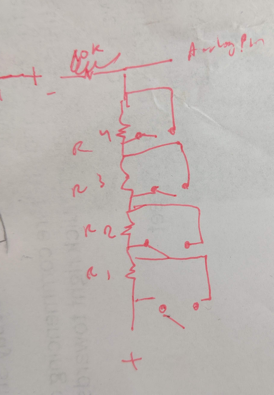 Analog Pin
R 4
R 3
R 2
R 1
+